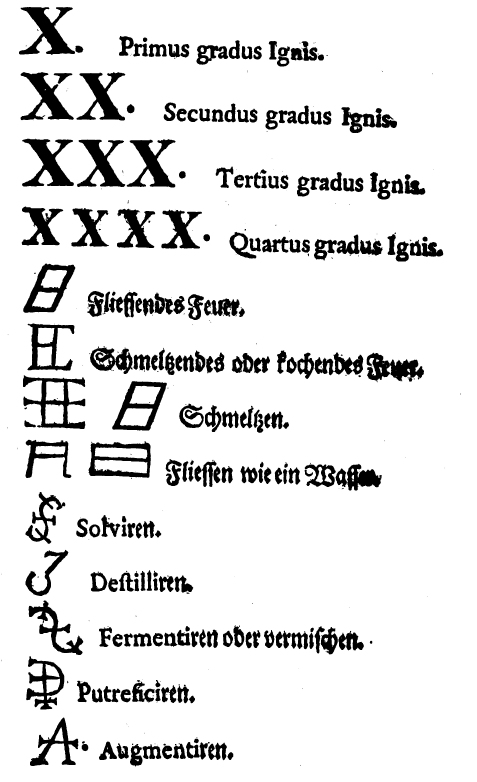 X. Primus gradus Ignis.
XX. Secundus gradus Ignis.
XXX. Tertius gradus Ignis.
XXXX. Quartus gradus Ignis.
Fliessendes Feuer.
Schmeltzendes oder kochendes Feuer.
Schmeltzen.
Fliessen wie ein Wasser.
Solviren.
Destilliren.
Fermentiren oder vermischen.
Putreficiren.
A. Augmentiren.